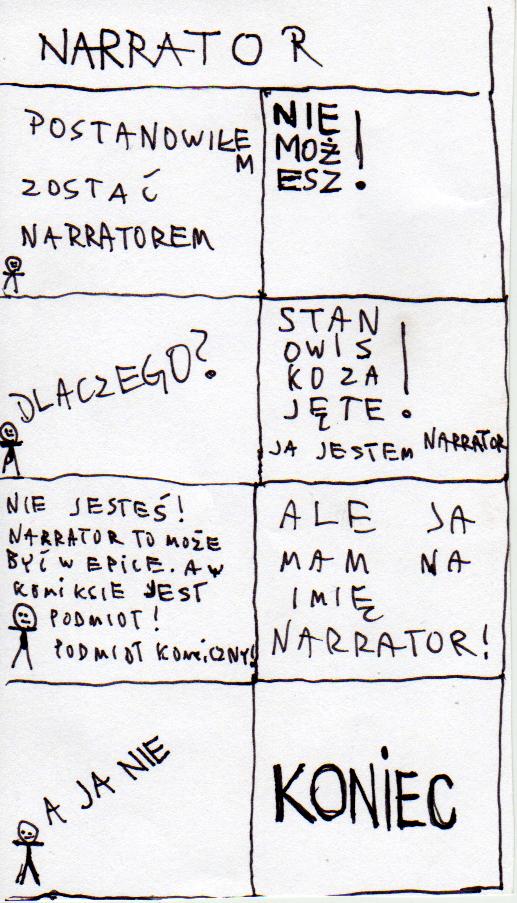 NARRATOR
POSTANOWIŁE
M
ZOSTAĆ
NARRATOREM
NIE
MOŻ
ESZ!
DLACZEGO?
STAN
OWIS
KO ZA
JĘTE!
JA JESTEM NARRATOR
NIE JESTEŚ!
NARRATOR TO MOŻE
BYĆ W EPICE. A W
KOMIKCIE JEST
PODMIOT!
PODMIOT KOMICZNY!
ALE JA
MAM NA
IMIĘ
NARRATOR!
A JA NIE
KONIEC